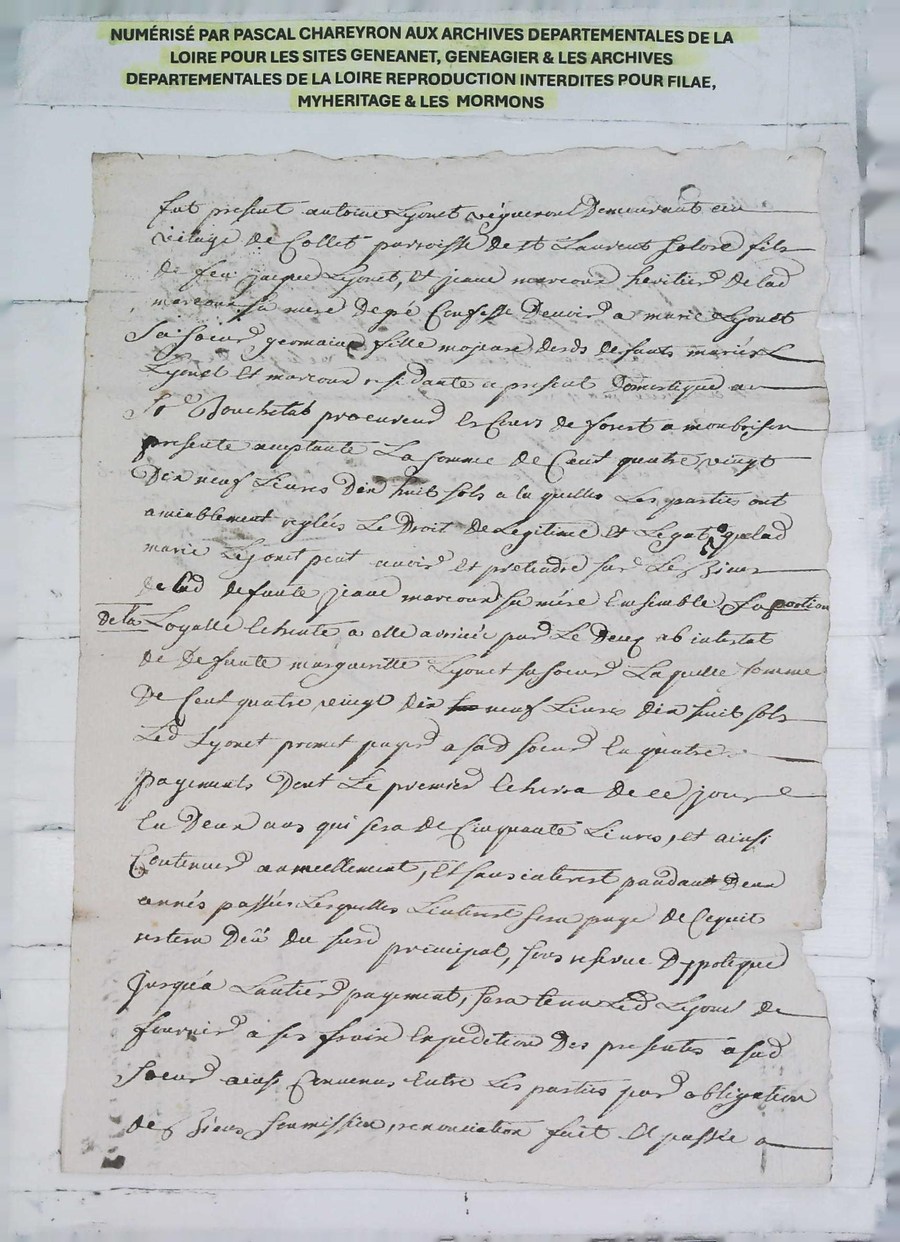 NUMÉRISÉ PAR PASCAL CHAREYRON AUX ARCHIVES DEPARTEMENTALES DE LA
LOIRE POUR LES SITES GENEANET, GENEAGIER & LES ARCHIVES
DEPARTEMENTALES DE LA LOIRE REPRODUCTION INTERDITES POUR FILAE,
MYHERITAGE & LES MORMONS
fut present antoine Lyonet vigneron Demeurant au
vilage de Collet parroisse de st Laurent fils
de feu jaque Lyonet, et jeane marcoux heritier de lad
marcoux sa mere de gré Confesse Devoir a marie Lyonet
Sa soeur germaine fille majeure desds defunts mariés
Lyonet et marcoux residante a present Domestique au
Sr procureur Es Cours de forest a montbrison
presente aceptante La somme de Cent quatre vingt
Dix neuf Livres Dix huit sols a la quelle Les parties ont
amiablement reglées Le Droit de Legitime Et Legat que lad
marie Lyonet peut avoir et pretendre sur Les Biens
de lad defunte jeane marcoux sa mére Ensemble La portion
De la Loyalle Echeute a elle arrivée par Le Deux ab intestat
de defunte margueritte Lyonet sa soeur La quelle somme
De Cent quatre vingt dix neuf Livres dix huit sols
Led Lyonet promet payer a sad soeur En quatre
payements Dont Le premier Echerra de ce jour
En Deux ans qui sera de Cinquante Livres, et ainsi
Continuer annuellement, Et sans interest pandant Deux
annés passées Lesquelles L'interest sera payé de Ce quil
restera Dëü du surd principal, sous reserve D'ypotique
jusqu'a L'antier payement, sera tenu Led Lyonet de
fournir a ses frais Expedition Des presentes a sad
Soeur ainsi Convenus Entre Les parties par obligation
de Biens soumission, renonciation fait Et passé a